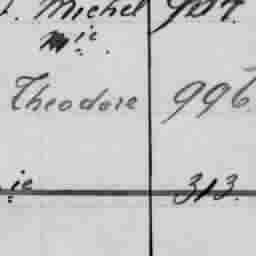 t. Michel 907.
Mie
Theodore 996
ie 313.